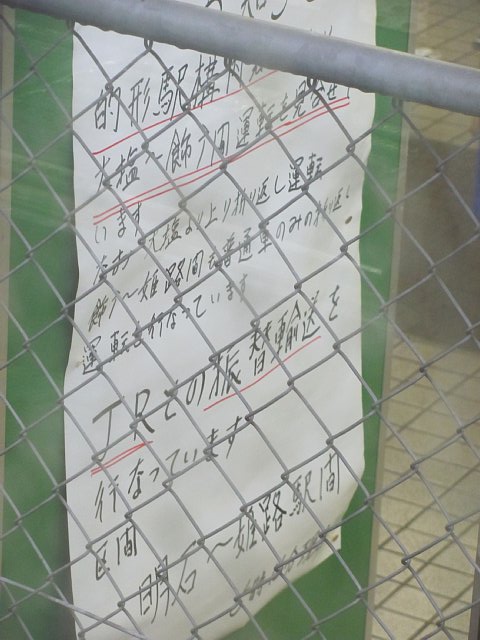 的形駅構内
大塩～飾ﾉ間運転を見合せて
います
なお 大塩より上り折り返し運転
飾ﾉ～姫路間も普通車のみの折り返し
運転を行なっています
JRとの振替輸送を
行なっています
区間
明石～姫路駅間